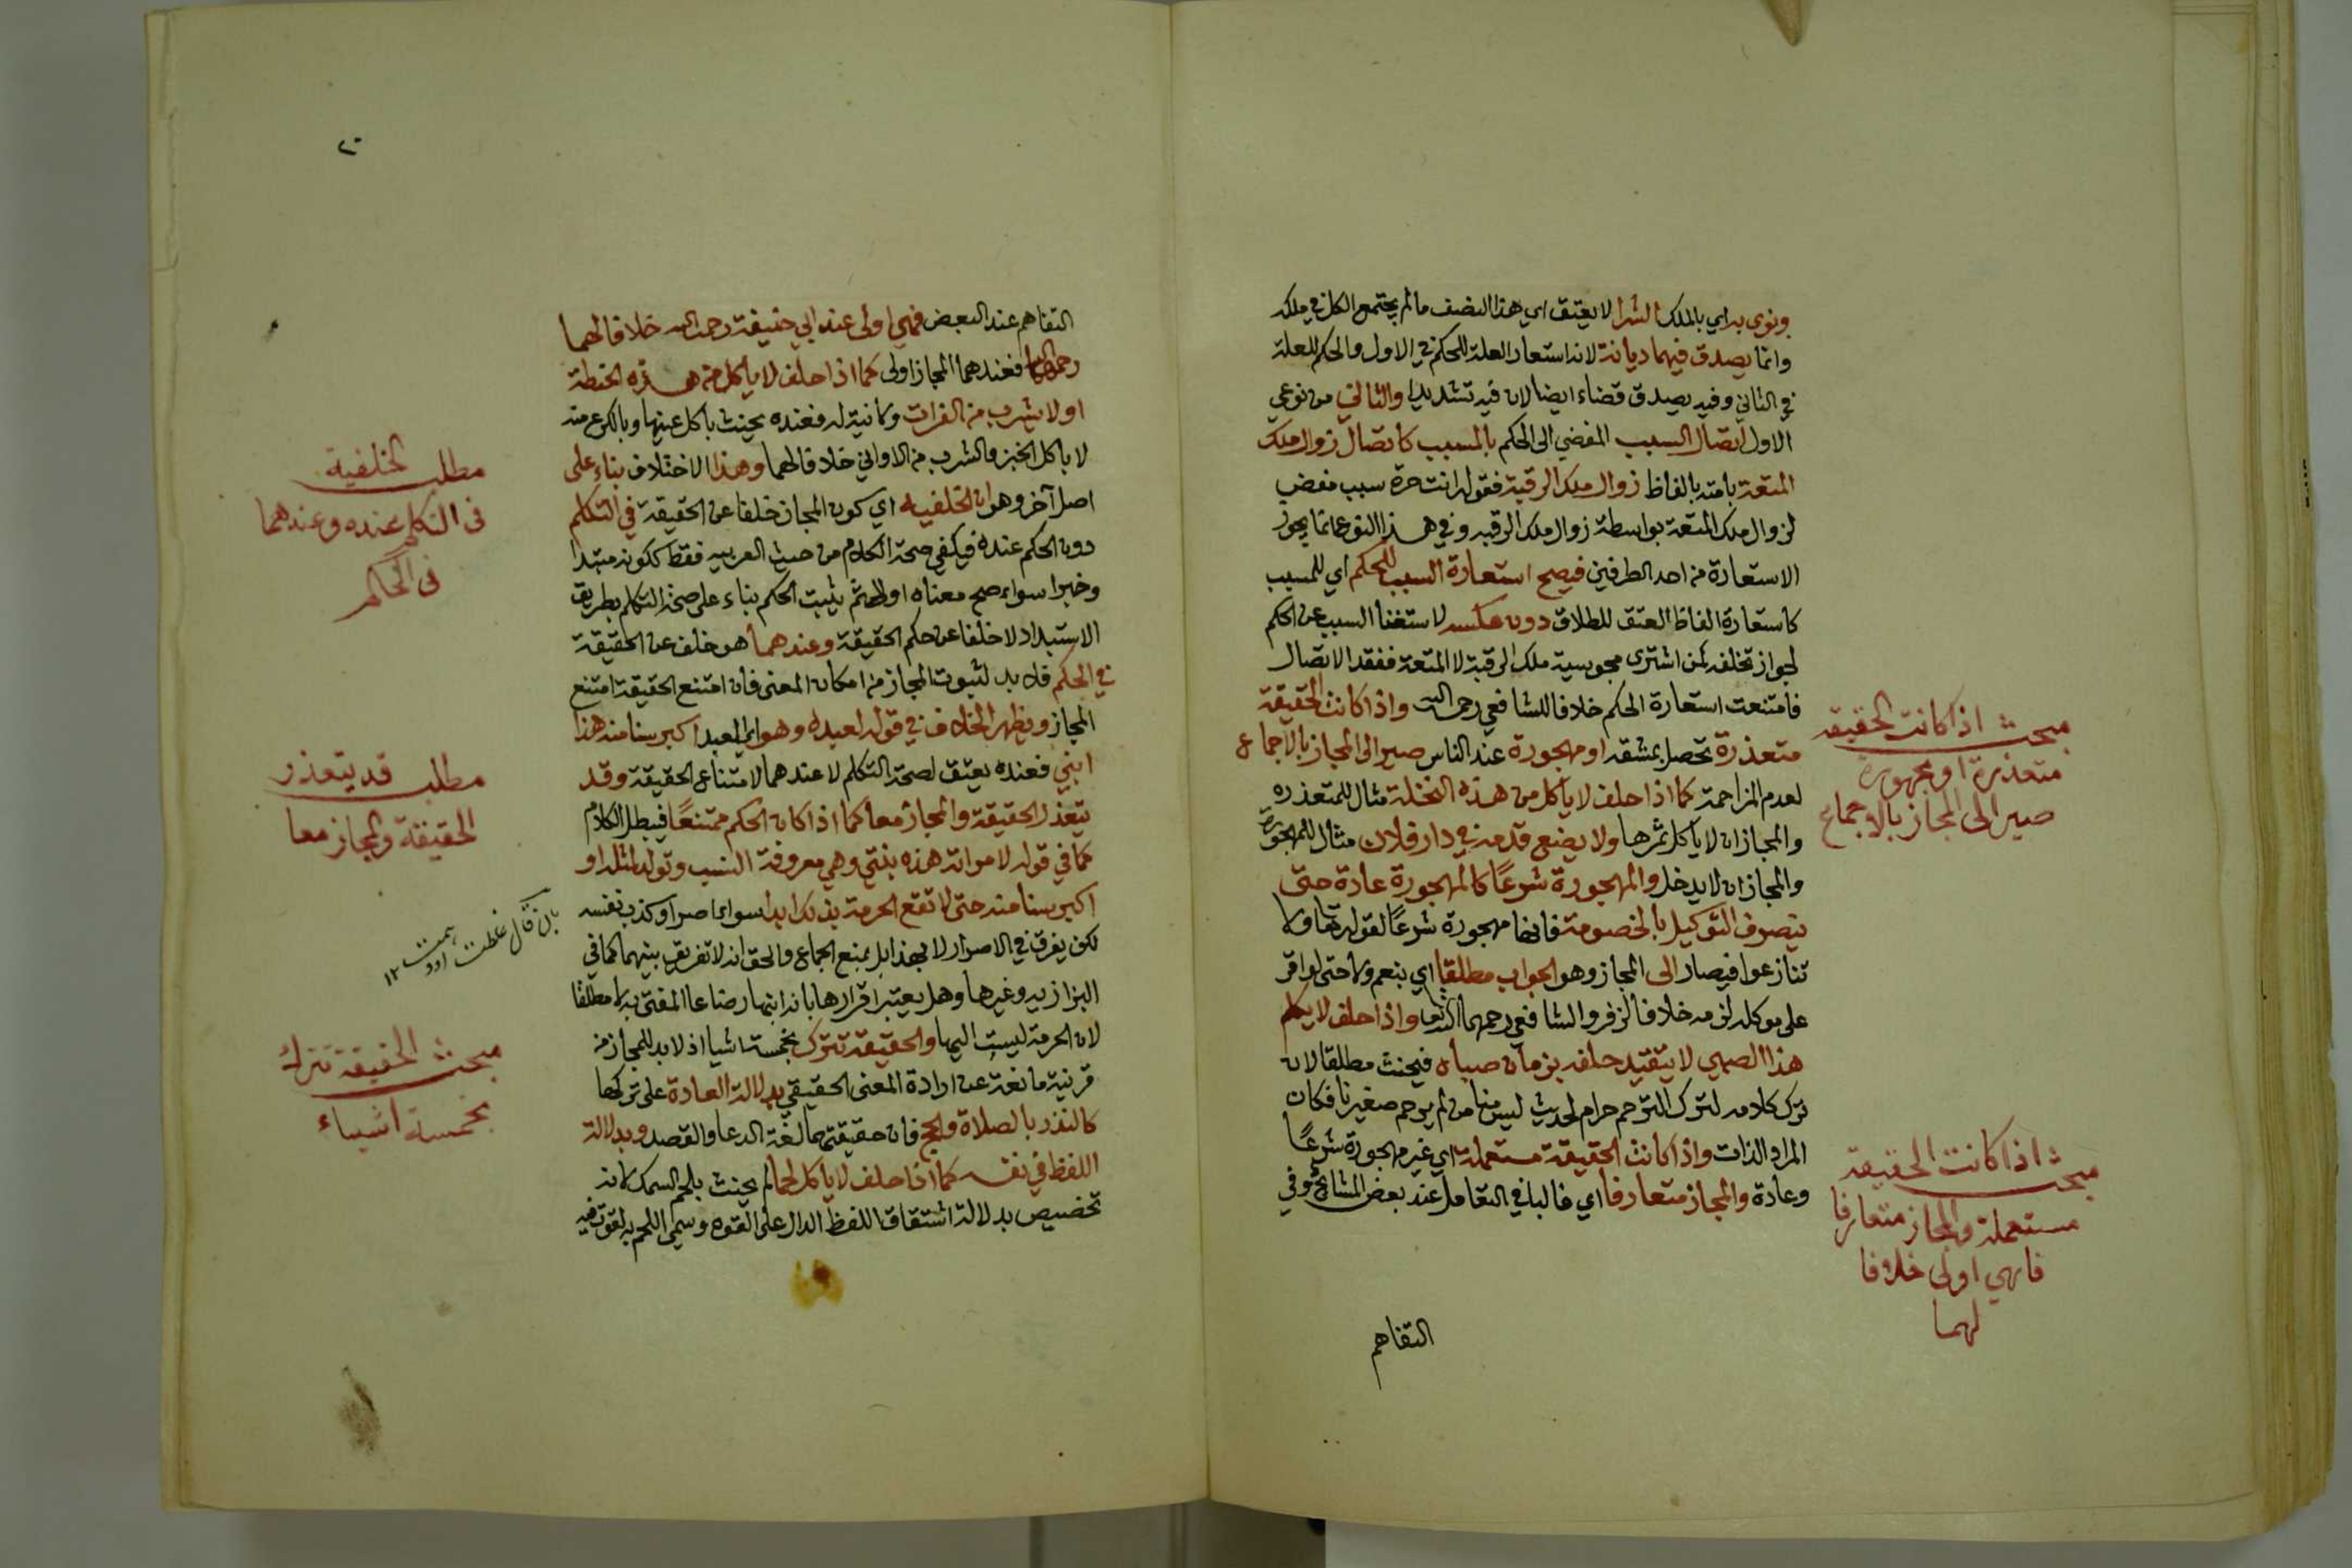 ونوى به اي بالملك الشرا لا يعتق اي هذا النصف ما لم يجتمع الكل في ملكه
وانما يصدق فيهما ديانة لانه استعار العلة للحكم في الاول والحكم للعلة
في الثاني وفيه يصدق قضاء ايضا لان فيه تشديدا والثاني من نوعي
الاول اتصال السبب المفضي الى الحكم بالمسبب كاتصال زوال ملك
المتعة بامته بالفاظ زوال ملك الرقبة فقوله انت حرة سبب مفض
لزوال ملك المتعة بواسطة زوال ملك الرقبه وفي هذا النوع انما يجوز
الاستعارة من احد الطرفين فيصح استعارة السبب للحكم اي للمسبب
كاستعارة الفاظ العتق للطلاق دون عكسه لاستغنا السبب عن الحكم
لجواز تخلفه كمن اشترى مجوسية ملك الرقبة لا المتعة ففقد الاتصال
فامتنعت استعارة الحكم خلافا للشافعي رحمه الله واذا كانت الحقيقة
متعذرة تحصل بمشقه او مهجورة عند الناس صير الى المجاز بالاجماع
لعدم المزاحمة كما اذا حلف لا ياكل من هذه النخلة مثال للمتعذره
والمجاز ان لا ياكل ثمرها ولا يضع قدمه في دار فلان مثال للمهجورة
والمجاز ان لا يدخل والمهجورة شرعا كالمهجورة عادة حتى
يتصرف التوكيل بالخصومة فانها مهجورة شرعا لقوله تعا ولا
تنازعوا فيصار الى المجاز وهو الجواب مطلقا اي بنعم ولا حتى لو اقر
على موكله لزمه خلافا لزفر والشافعي رحمهما الله تعا واذا حلف لا يكلم
هذا الصبي لا يتقيد حلفه بزمان صباه فيحنث مطلقا لان
ترك كلامه لترك الترحم حرام لحديث ليس منا من لم يرحم صغيرنا فكان
المراد الذات واذا كانت الحقيقة مستعملة اي غير مهجورة شرعا
وعادة والمجاز متعارفا اي غالبا في التعامل عند بعض المشايخ وفي
التفاهم
مبحث اذا كانت الحقيقه
متعذرة او مهجورة
صير الى المجاز بالاجماع
مبحث اذا كانت الحقيقة
مستعملة والمجاز متعارفا
فهي اولى خلافا
لهما
٢٠
التفاهم عند البعض فهي اولى عند ابي حنيفة رحمه الله خلافا لهما
رحمهما الله فعندهما المجاز اولى كما اذا حلف لا ياكل من هذه الحنطة
او لا يشرب من الفرات ولا نية له فعنده يحنث باكل عينها وبالكرع منه
لا باكل الخبز والشرب من الاواني خلافا لهما وهذا الاختلاف بناء على
اصل آخر وهو ان الخلفيه اي كون المجاز خلفا عن الحقيقة في التكلم
دون الحكم عنده فيكفي صحة الكلام من حيث العربيه فقط ككونه مبتدا
وخبرا سواء صح معناه او لا ثم يثبت الحكم بناء على صحة التكلم بطريق
الاستبداد لا خلفا عن حكم الحقيقة وعندهما هو خلف عن الحقيقة
في الحكم فلا بد لثبوت المجاز من امكان المعنى فان امتنع الحقيقة امتنع
المجاز ويظهر الخلاف في قوله لعبده وهو اي العبد اكبر سنا منه هذا
ابني فعنده يعتق لصحة التكلم لا عندهما لامتناع الحقيقة وقد
يتعذر الحقيقة والمجاز معا كما اذا كان الحكم ممتنعا فيبطل الكلام
كما في قوله لامراته هذه بنتي وهي معروفة النسب وتولد لمثله او
اكبر سنا منه حتى لا تقع الحرمة بذلك ابدا سواء اصر او كذب نفسه
لكن يفرق في الاصرار لا بهذا بل بمنع الجماع والحق انه لا تفريق بينهما كما في
البزازيه وغيرها وهل يعتبر اقرارها بانه ابنها رضاعا المفتى به لا مطلقا
لان الحرمة ليست اليها والحقيقة تترك بخمسة اشيا اذ لا بد للمجاز من
قرينة مانعة عن ارادة المعنى الحقيقي بدلالة العادة على تركها
كالنذر بالصلاة والحج فان حقيقتهما لغة الدعا والقصد وبدلالة
اللفظ في نفسه كما اذا حلف لا ياكل لحما لم يحنث بلحم السمك لانه
تخصيص بدلالة اشتقاق اللفظ الدال على القوه وسمي اللحم به لقوة فيه
مطلب الخلفية
في التكلم عنده وعندهما
في الحكم
مطلب قد يتعذر
الحقيقة والمجاز معا
بان قال غلطت او وهمت ١٢
مبحث الحقيقة تترك
بخمسة اشياء